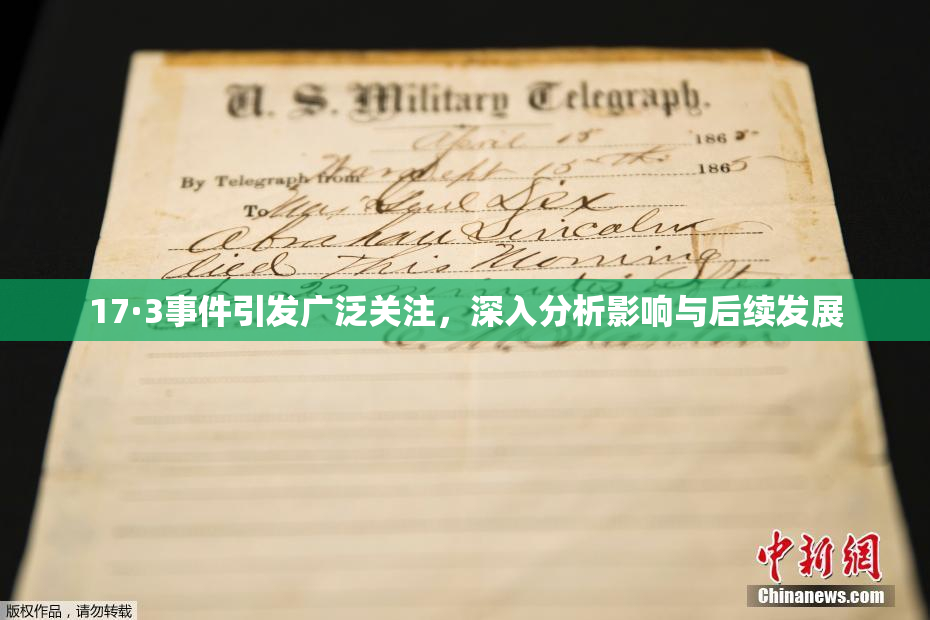 U. S. Military Telegraph.
April 15 1865
By Telegraph from War Dept 15th 1865
To Maj Genl Dix
Abraham Lincoln
died This Morning
22 minutes after
17·3事件引发广泛关注，深入分析影响与后续发展
E. M. Stanton
中新网
Chinanews.com
版权作品，请勿转载